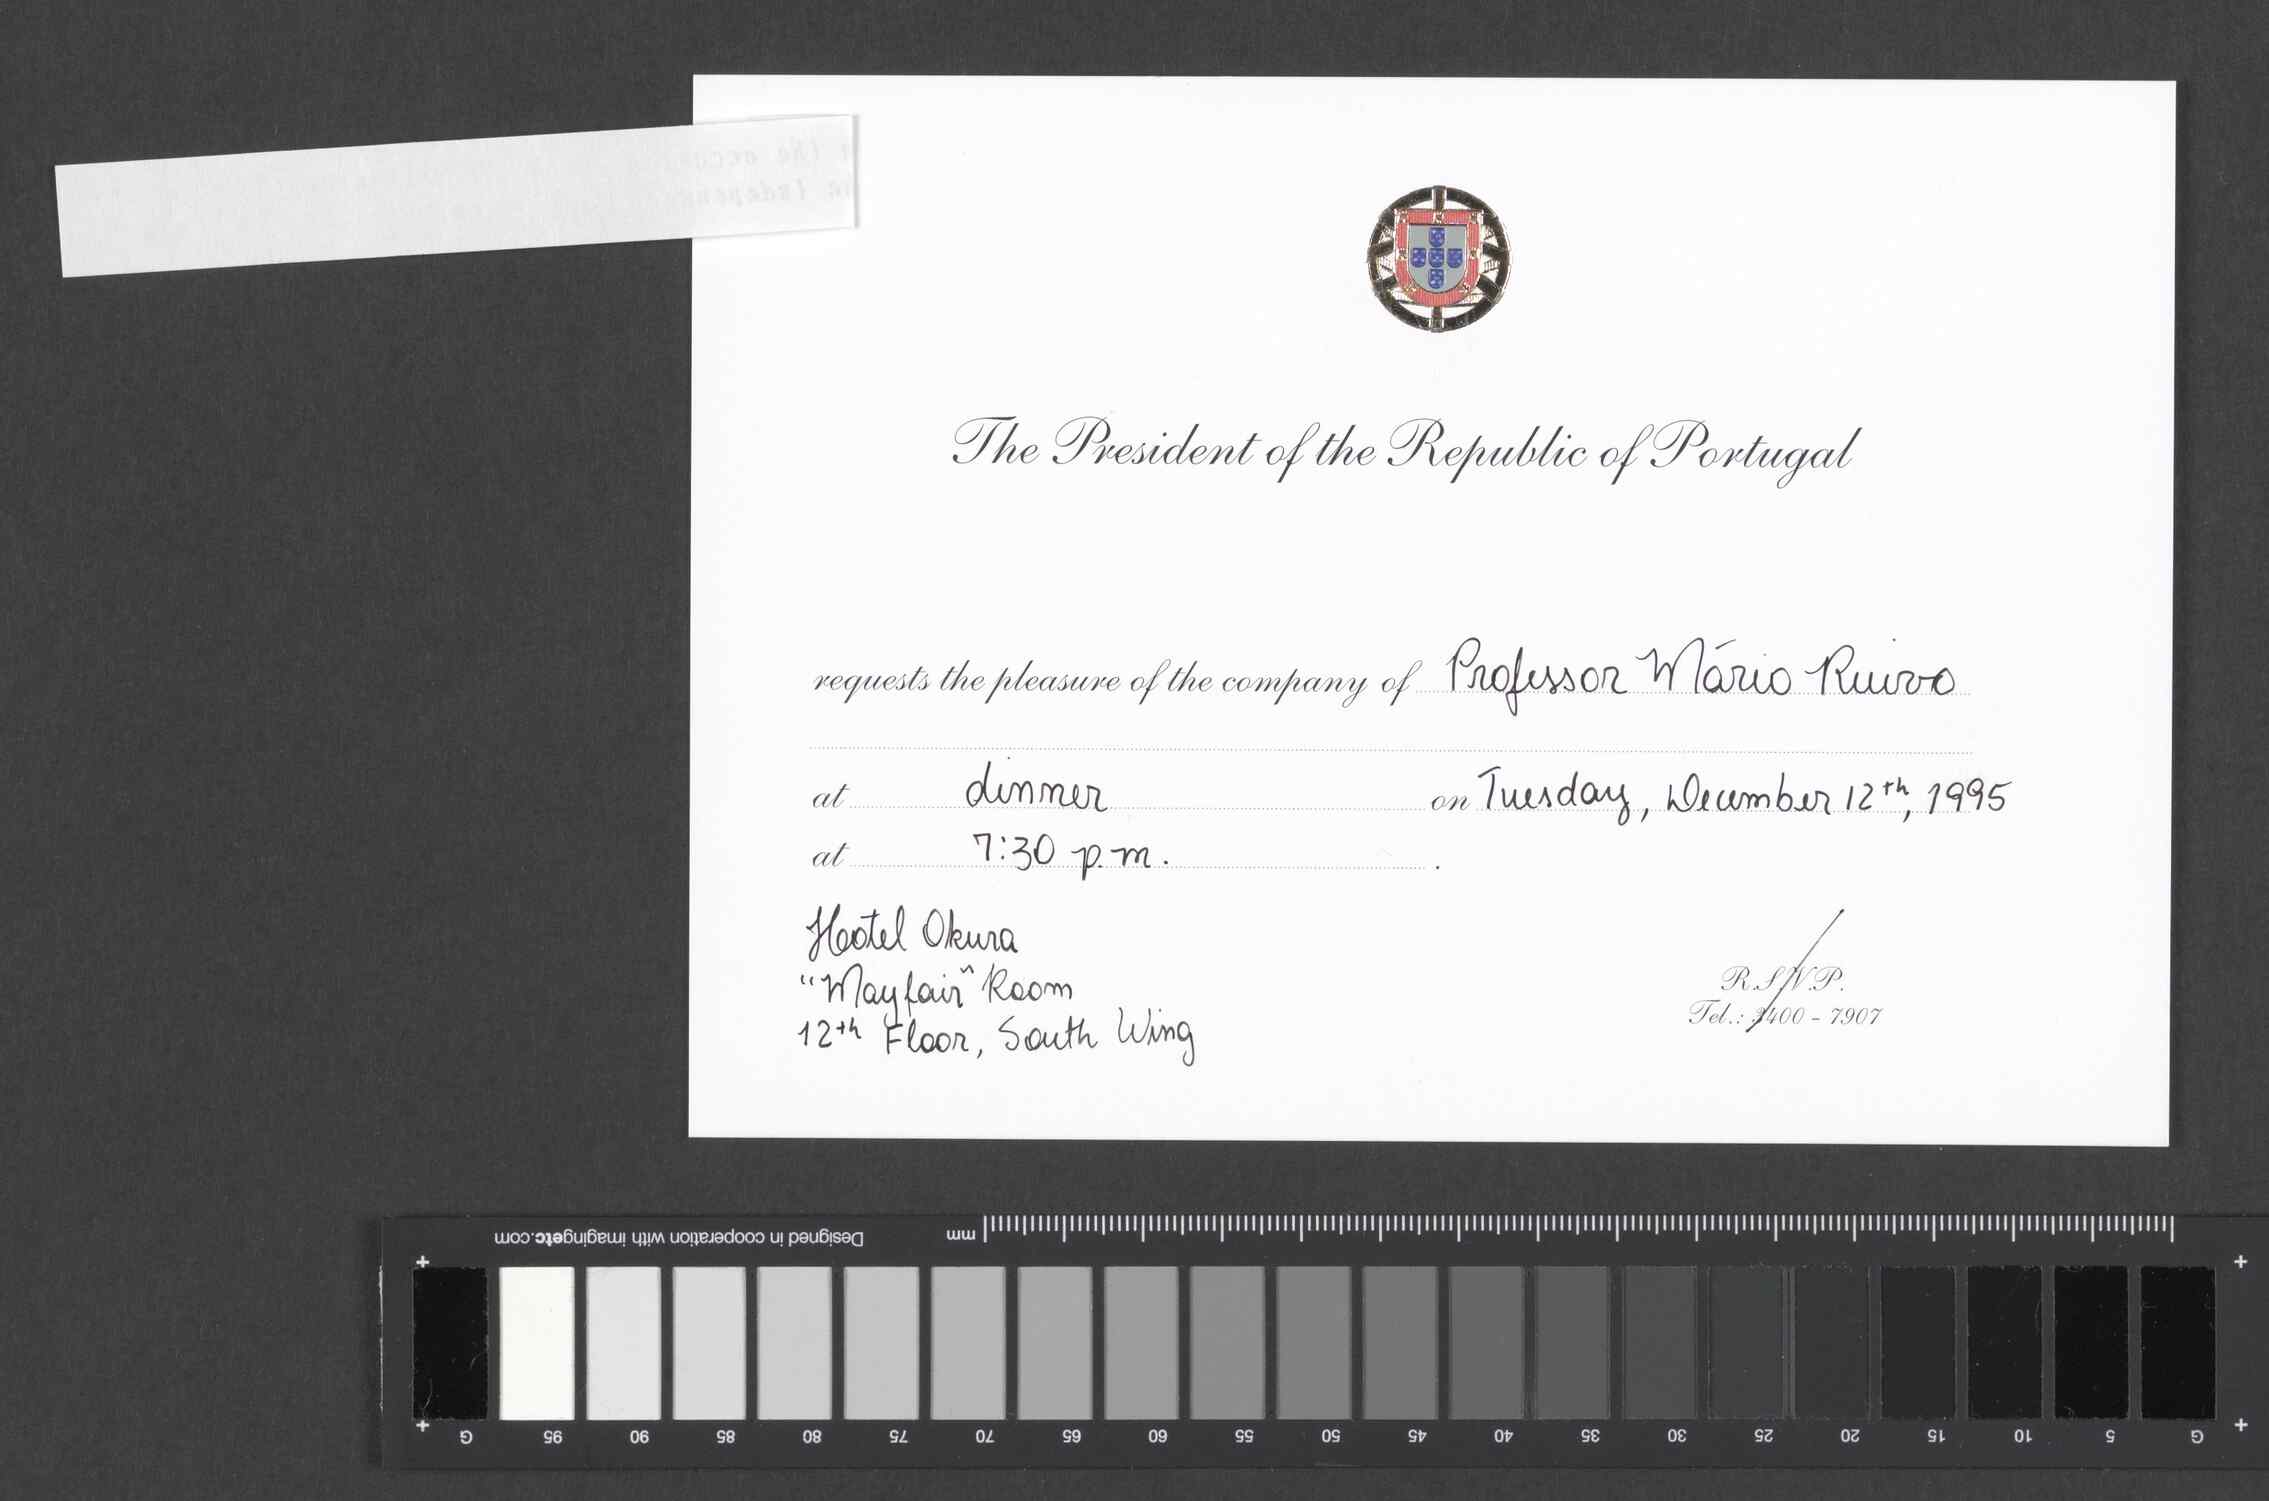 The President of the Republic of Portugal
requests the pleasure of the company of Professor Mário Ruivo
at dinner on Tuesday, December 12th, 1995
at 7:30 p.m. .
Hotel Okura
"Mayfair" Room
12th Floor, South Wing
R.S.V.P.
Tel.: 3400 - 7907
Designed in cooperation with imagingetc.com
mm
G 95 90 85 80 75 70 65 60 55 50 45 40 35 30 25 20 15 10 5 G